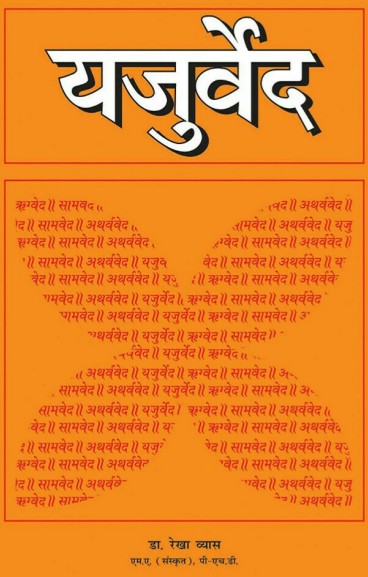 यजुर्वेद
ऋग्वेद॥ सामवे
सामवेद॥ अथर्ववेद॥
अथर्ववेद॥ यजु
ऋग्वेद॥ सामवेद॥ अथर्ववेद
ऋग्वेद॥ सामवेद॥ अथर्ववेद॥
सामवेद॥ अथर्ववेद॥ यजुर्
ऋग्वेद॥ सामवेद॥
वेद॥ सामवेद॥ अथर्ववेद॥
ऋग्वेद॥ सामवेद॥ अथर्ववे
सामवेद॥ अथर्ववेद॥ यजुर्वेद॥ ऋग्वेद॥ सामवेद॥ अथर्ववेद
सामवेद॥ अथर्ववेद॥ यजुर्वेद॥ ऋग्वेद॥ सामवेद॥
अथर्ववेद॥ यजुर्वेद॥ ऋग्वेद॥ सामवेद॥
यजुर्वेद॥
अथर्ववेद॥ यजुर्वेद॥ ऋग्वेद॥ सामवेद॥
सामवेद॥ अथर्ववेद॥ यजुर्वेद॥ ऋग्वेद॥ सामवेद॥
सामवेद॥ अथर्ववेद॥ यजुर्वेद॥ ऋग्वेद॥ सामवेद॥ अथर्ववेद॥
सामवेद॥ अथर्ववेद॥ यजुर्वेद ऋग्वेद॥ सामवेद॥ अथर्ववेद॥
ऋग्वेद॥ सामवेद॥ अथर्ववेद॥ ऋग्वेद॥ सामवेद॥ अथर्ववेद॥
सामवेद॥ अथर्ववेद॥ सामवेद॥ अथर्ववेद॥
ऋग्वेद॥ सामवेद॥ अथर्ववेद सामवेद॥ अथर्ववेद॥
सामवेद॥ अथर्ववेद॥
ऋग्वेद॥ अथर्ववेद॥
डा. रेखा व्यास
एम.ए. (संस्कृत), पी-एच.डी.